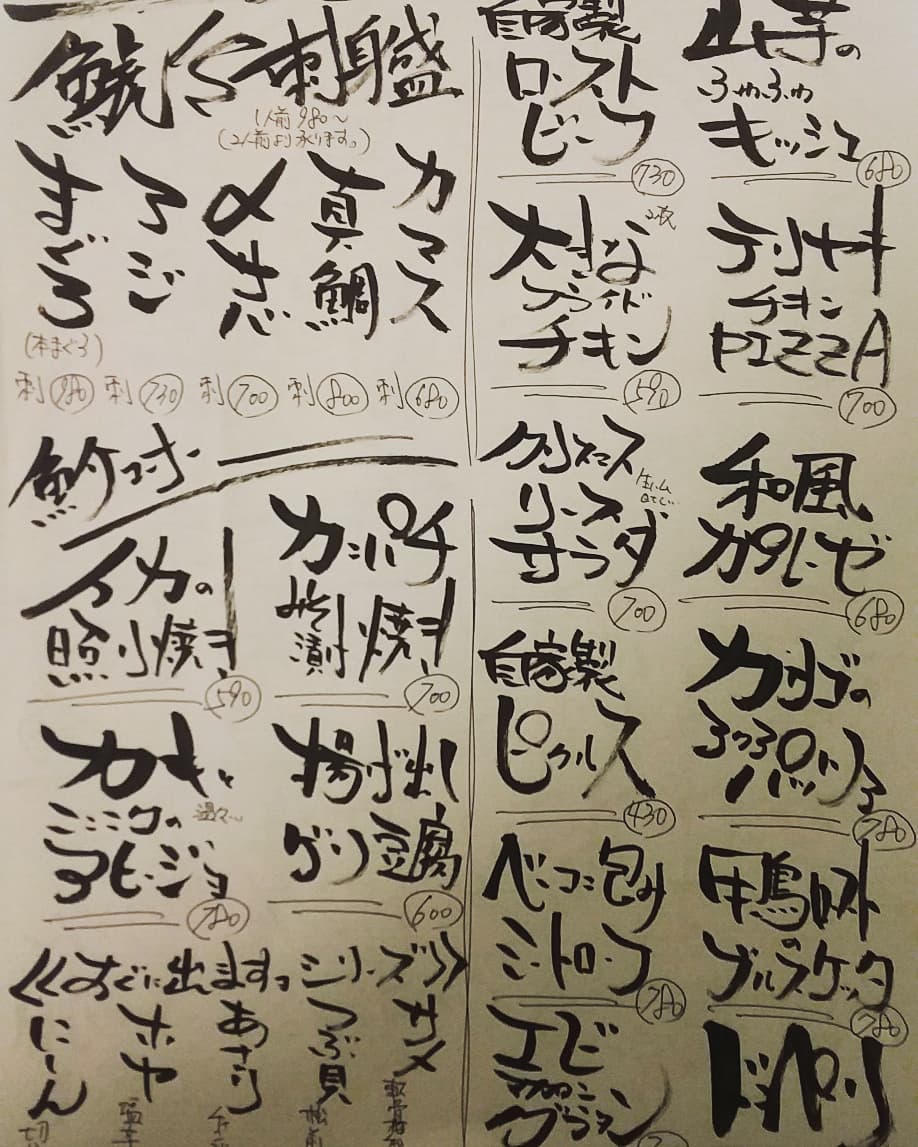 刺身盛
1人前 980〜
(2人前より承ります。)
カマス
真鯛
〆さば
アジ
まぐろ
(本まぐろ)
刺 980 刺 730 刺 700 刺 800 刺 680
コーナー
イカの
照り焼き
590
カンパチ
みそ漬焼き
700
かきと
キノコの
アヒージョ
780
揚げ出し
豆腐
600
《すぐに出ますっ シリーズ》
サメ
軟骨梅
つぶ貝
松前
あさり
ホヤ
塩辛
にしん
切
自家製
ローストビーフ
730
大きな
2枚
フライド
チキン
590
クリスマス
リース
サラダ
生ハム
700
自家製
ピクルス
430
ベーコン包み
ミートローフ
780
エビ
マカロニ
グラタン
山芋の
ふわふわ
キッシュ
680
テリヤキ
チキン
PIZZA
700
和風
カプレーゼ
680
780
鴨ロースト
の
ブルスケッタ
780